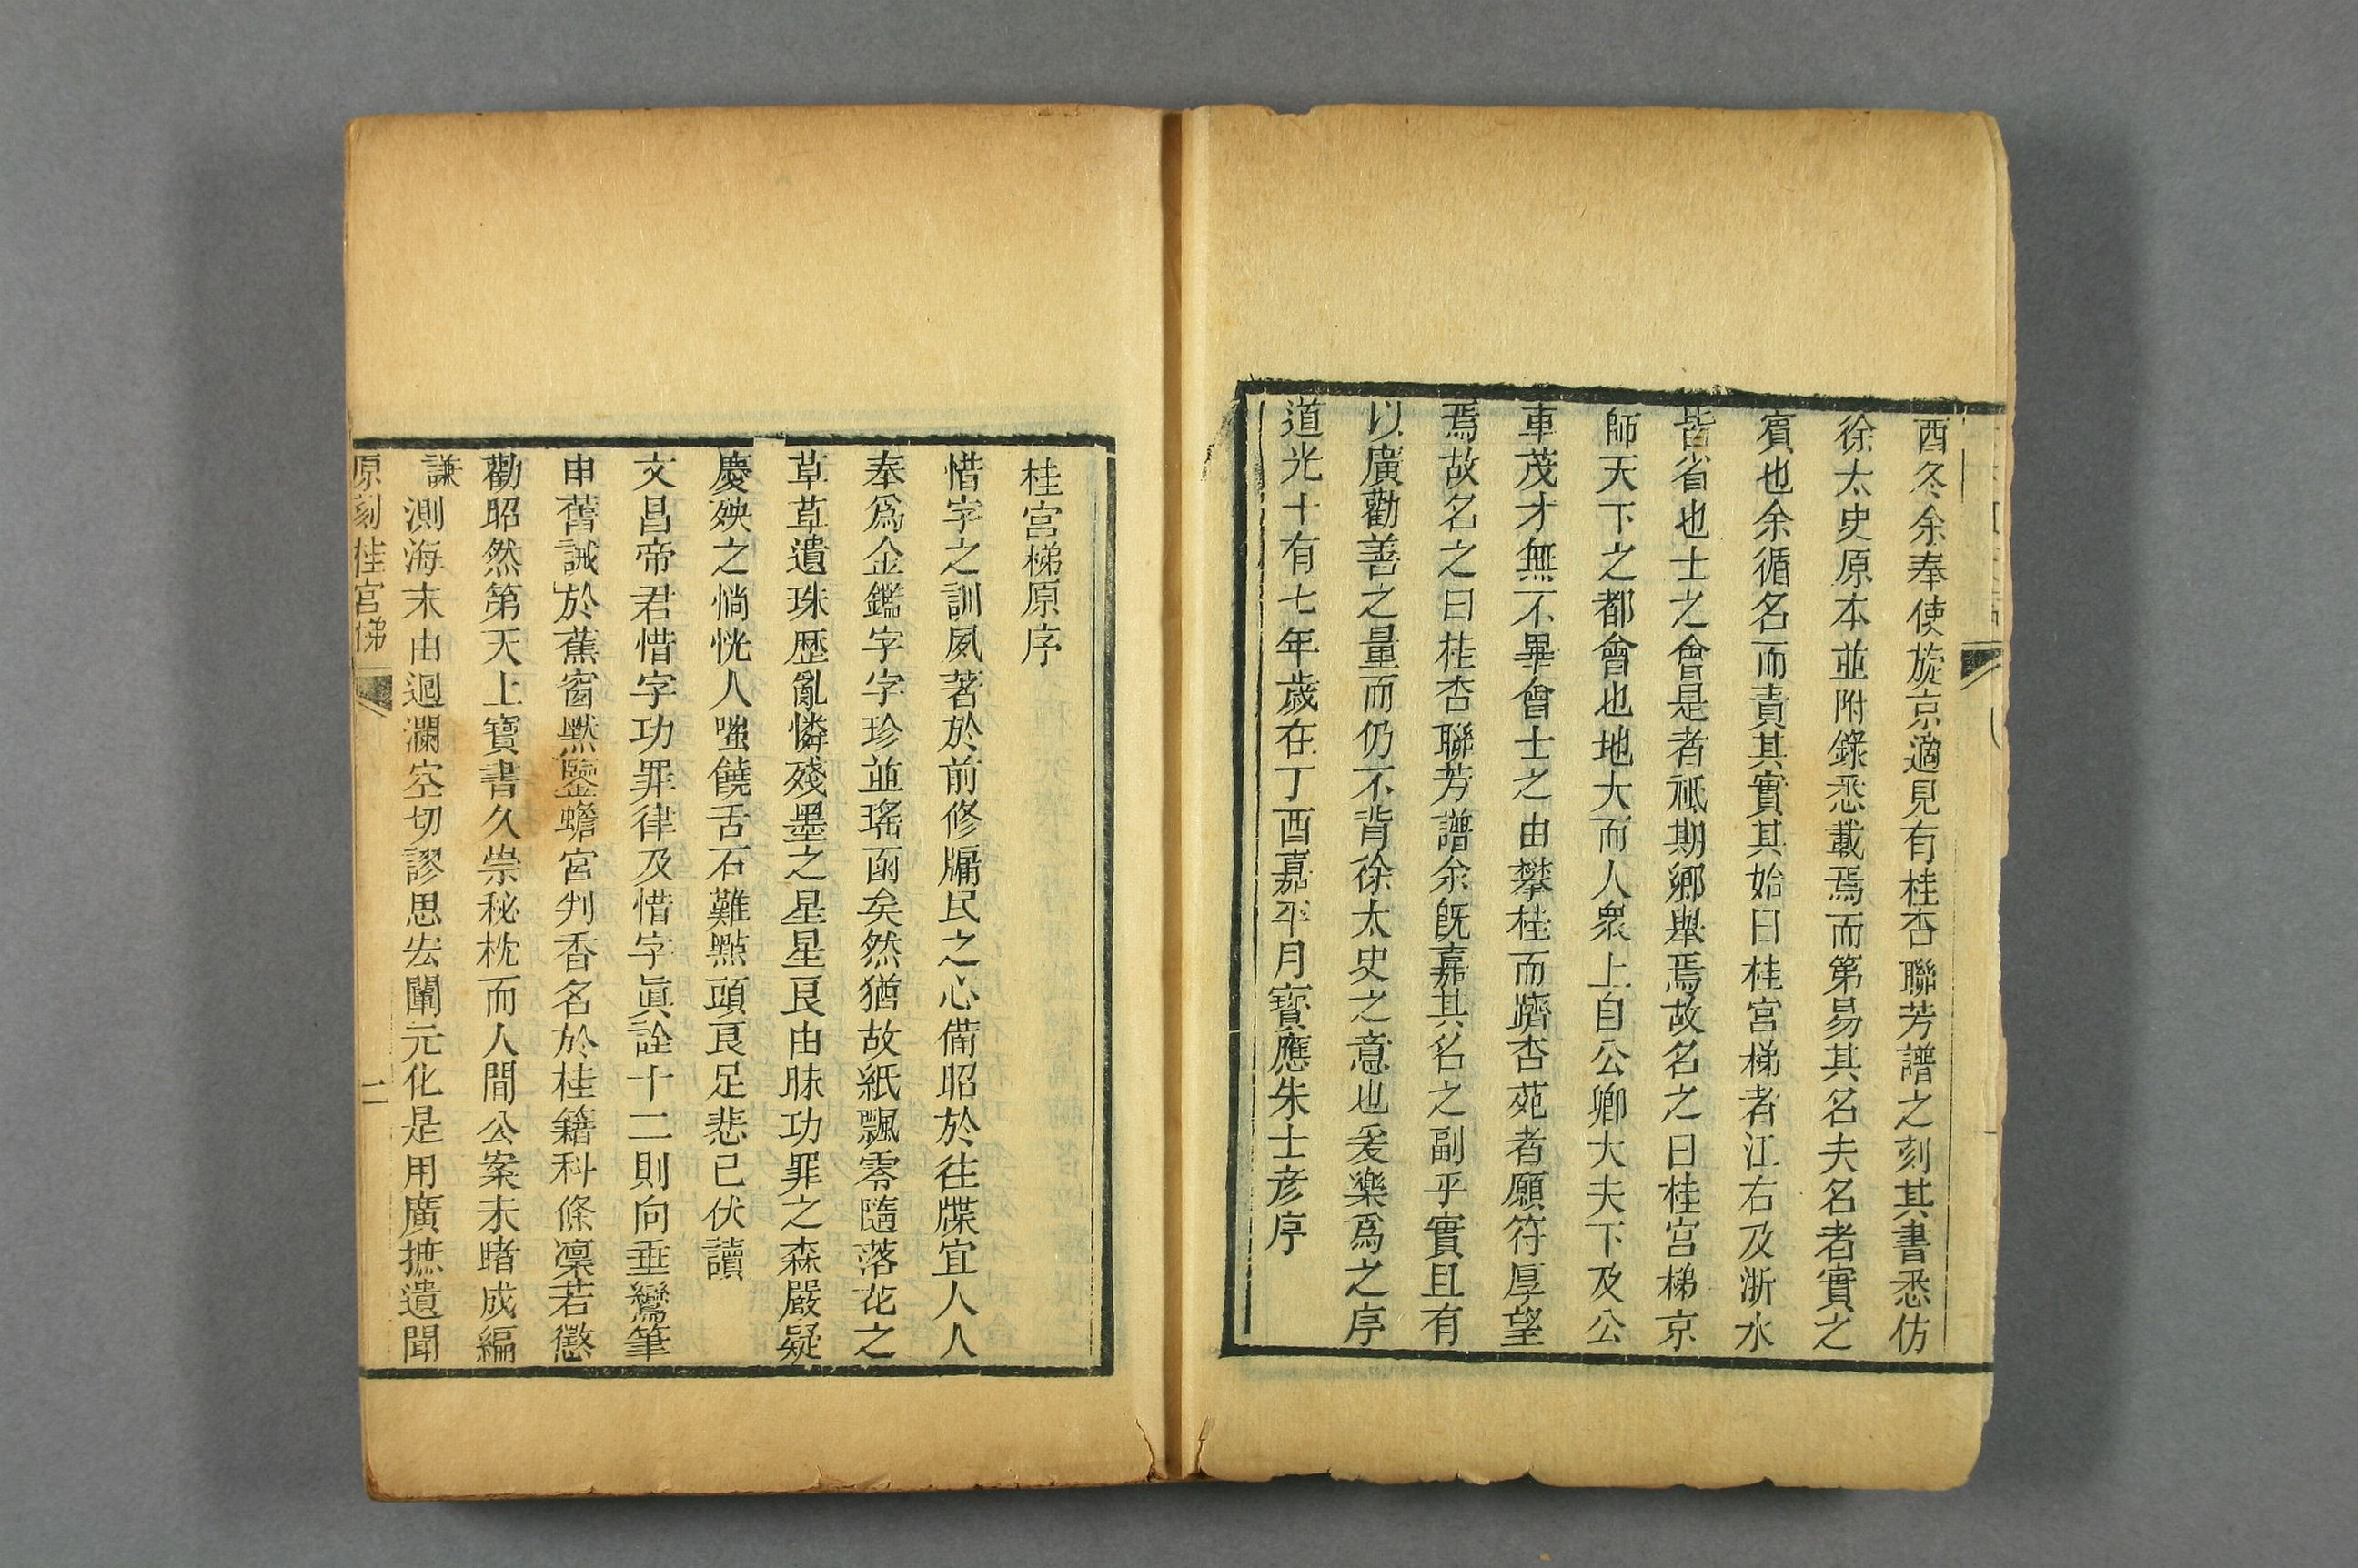 酉冬余奉使旋京適見有桂杏聯芳譜之刻其書悉仿
徐太史原本並附錄悉載焉而第易其名夫名者實之
賓也余循名而責其實其始曰桂宮梯者江右及浙水
皆省也士之會是者祇期鄉舉焉故名之曰桂宮梯京
師天下之都會也地大而人衆上自公卿大夫下及公
車茂才無不畢會士之由攀桂而躋杏苑者願符厚望
焉故名之曰桂杏聯芳譜余既嘉其名之副乎實且有
以廣勸善之量而仍不背徐太史之意也爰樂爲之序
道光十有七年歲在丁酉嘉平月寶應朱士彥序
桂宮梯原序
惜字之訓夙著於前修牖民之心備昭於往牒宜人人
奉爲金鑑字字珍並瑤函矣然猶故紙飄零隨落花之
草草遺珠歷亂憐殘墨之星星艮由昧功罪之森嚴疑
慶殃之惝恍人嗤饒舌石難點頭艮足悲已伏讀
文昌帝君惜字功罪律及惜字眞詮十二則向垂鸞筆
申舊誡於蕉窗黙鑒蟾宮判香名於桂籍科條凜若懲
勸昭然第天上寶書久崇秘枕而人間公案未睹成編
謙測海末由迴瀾空切謬思宏闡元化是用廣摭遺聞
原刻桂宮梯
二